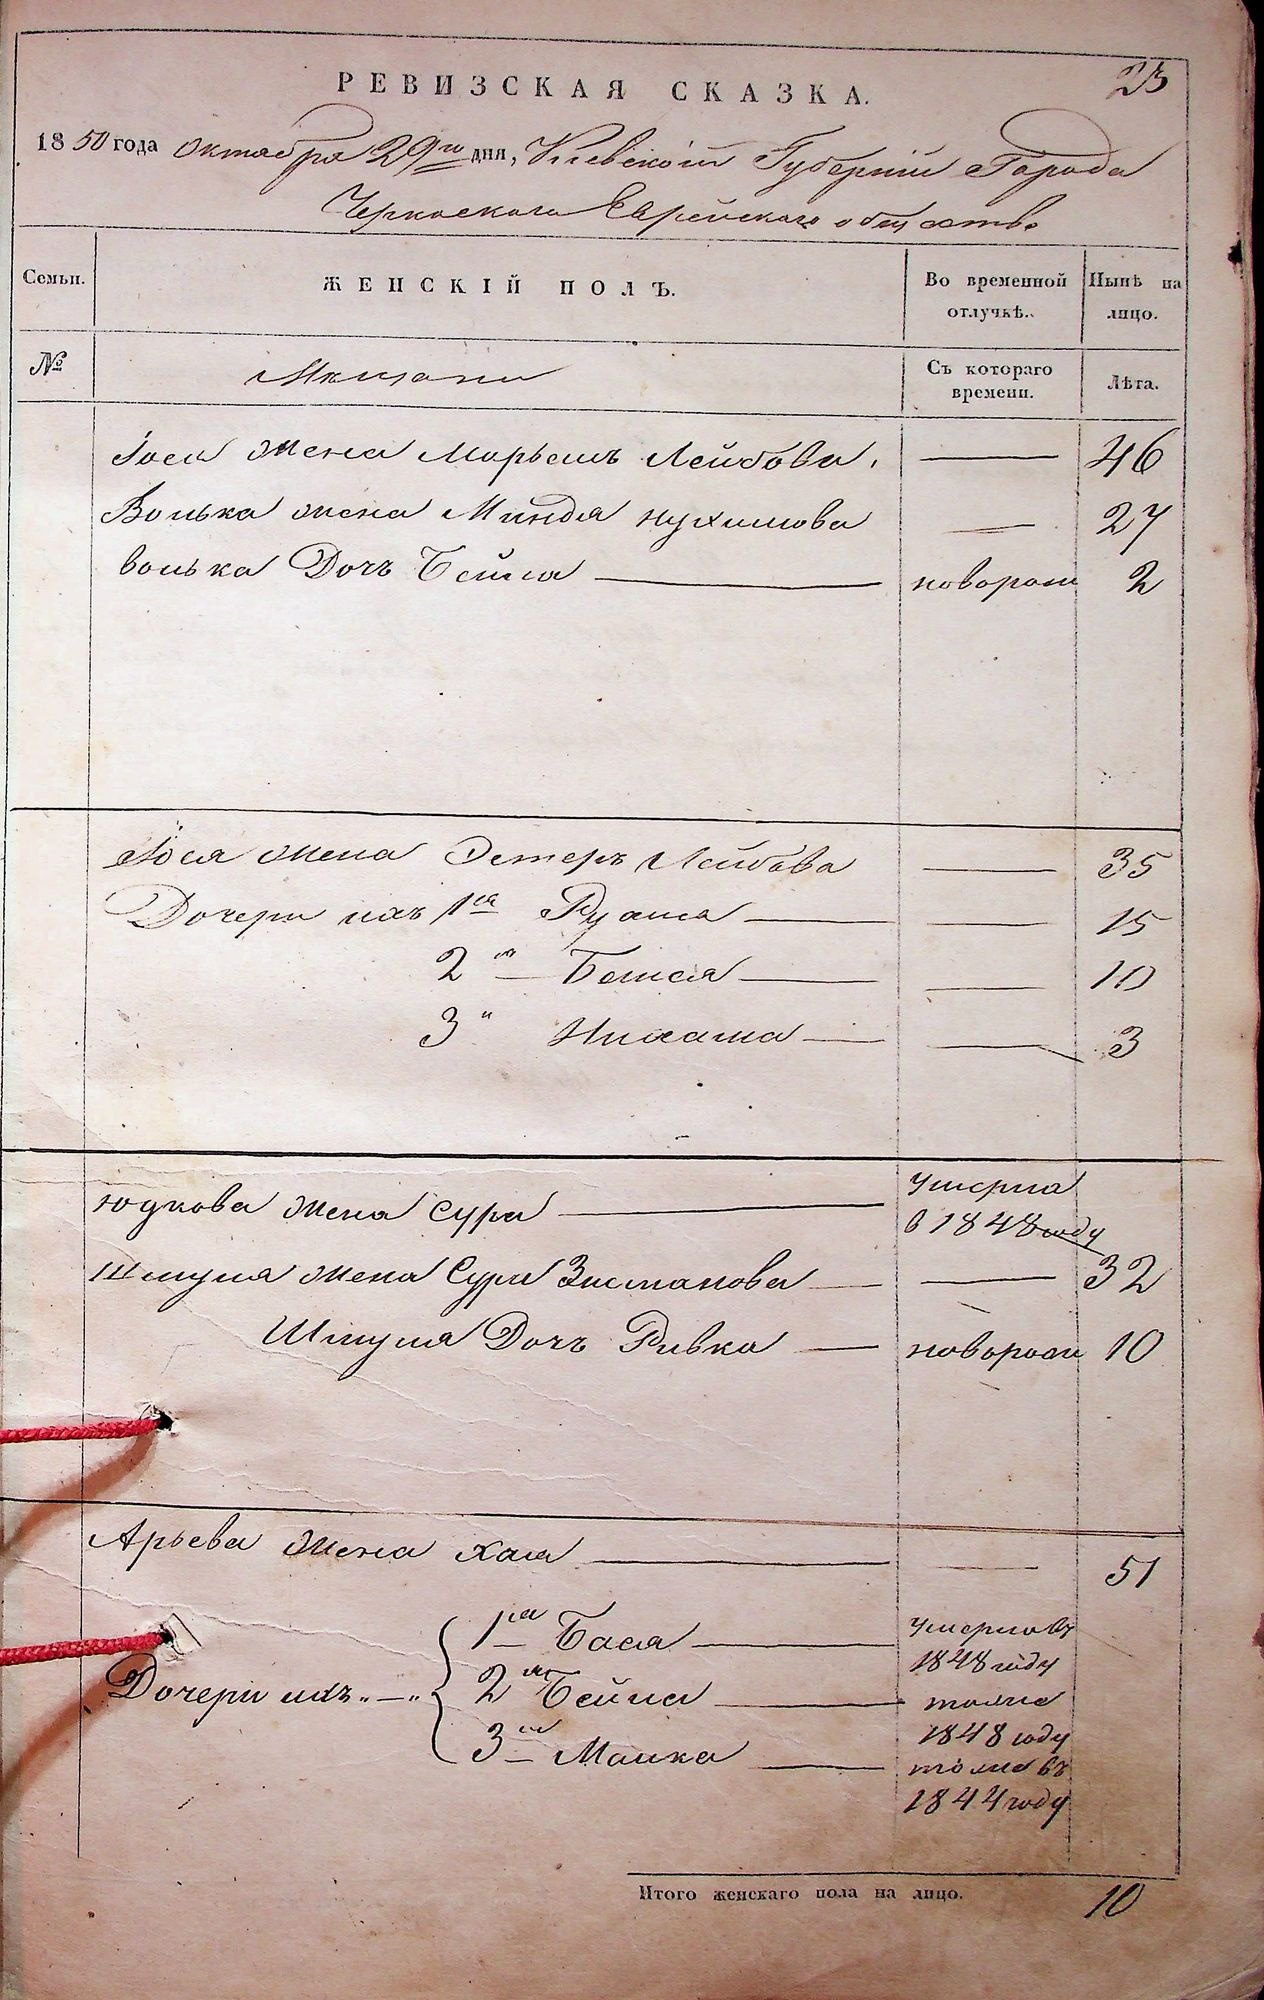 23
РЕВИЗСКАЯ СКАЗКА.
1850 года Октября 29го дня, Киевской Губернии Города
Черкаского Еврейского общества
Семьи.
ЖЕНСКІЙ ПОЛЪ.
Во временной отлучкѣ.
Нынѣ на лицо.
№
Мещани
Съ котораго времени.
Лѣта.
Іося жена Марьемъ Лейбова. — 46
Волька жена Минда Нухимова — 27
Волька Дочь Бейла — новорож 2
Іося жена Эстеръ Лейбова — 35
Дочери ихъ 1я — 15
2я Бейся — 10
3 — 3
Юдкова жена Сура — умерла
в 1848 году
Шмуля жена Сура Зисманова — 32
Шмуля Дочь Ривка — новорож 10
Арьева жена Хая — 51
Дочери ихъ 1я Бася — умерла въ
1848 году
2я Бейла — тоже
1848 году
3я Малка — тоже въ
1844 году
Итого женскаго пола на лицо. 10